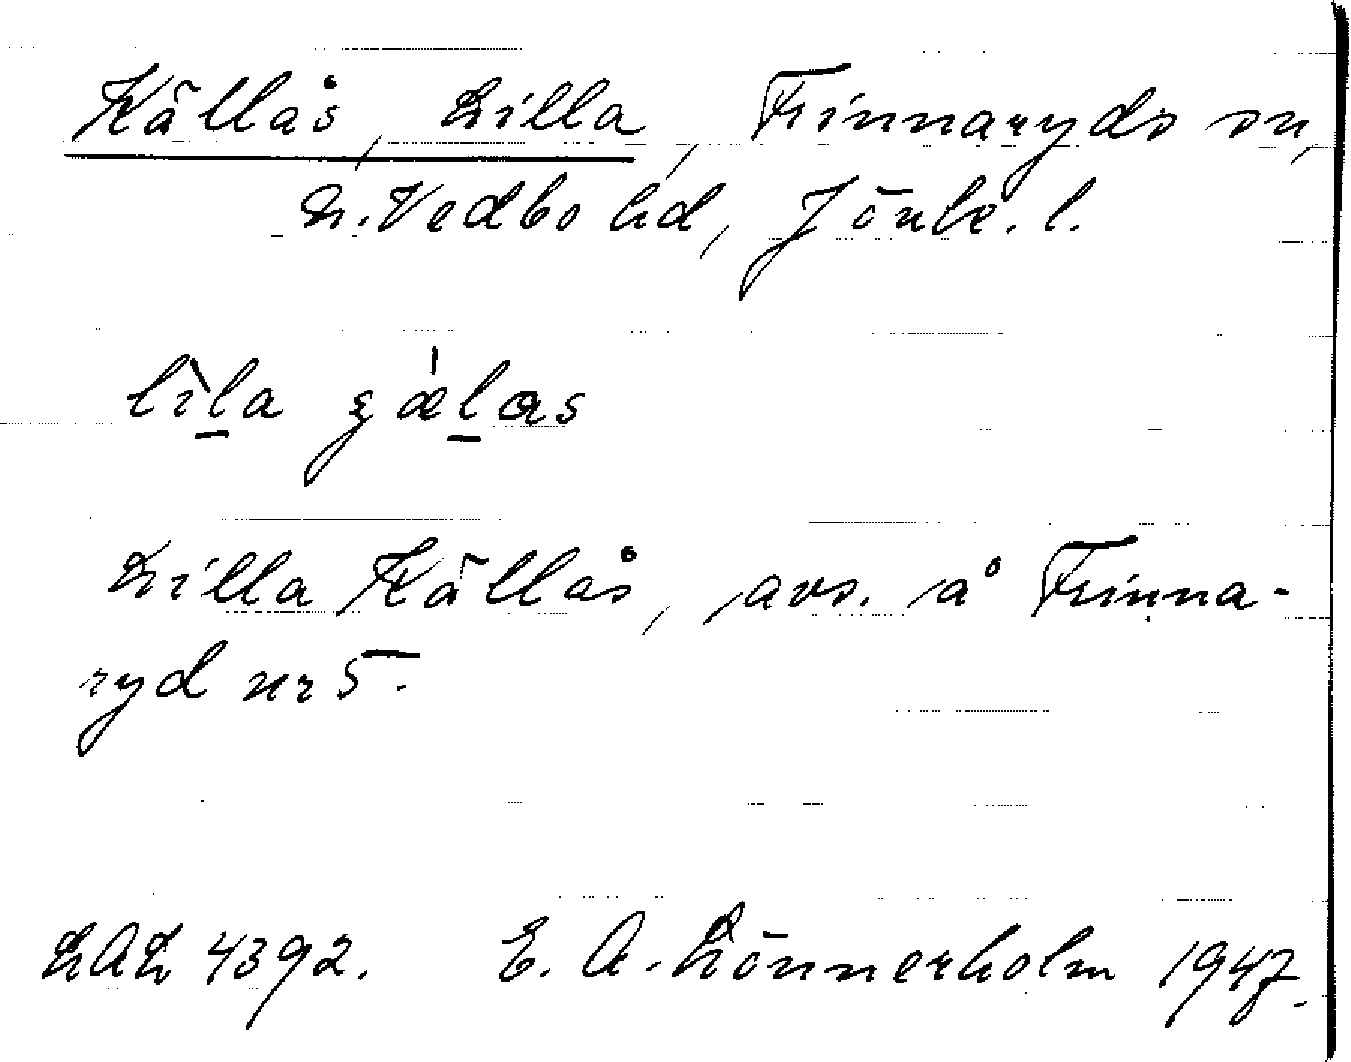 Källås, Lilla, Frinnaryds sn,
N. Vedbo hd, Jönk. l.
Lilla Källås, avs. å Frinna-
ryd nr 5.
LAL 4392. E. A. Lönnerholm 1947.